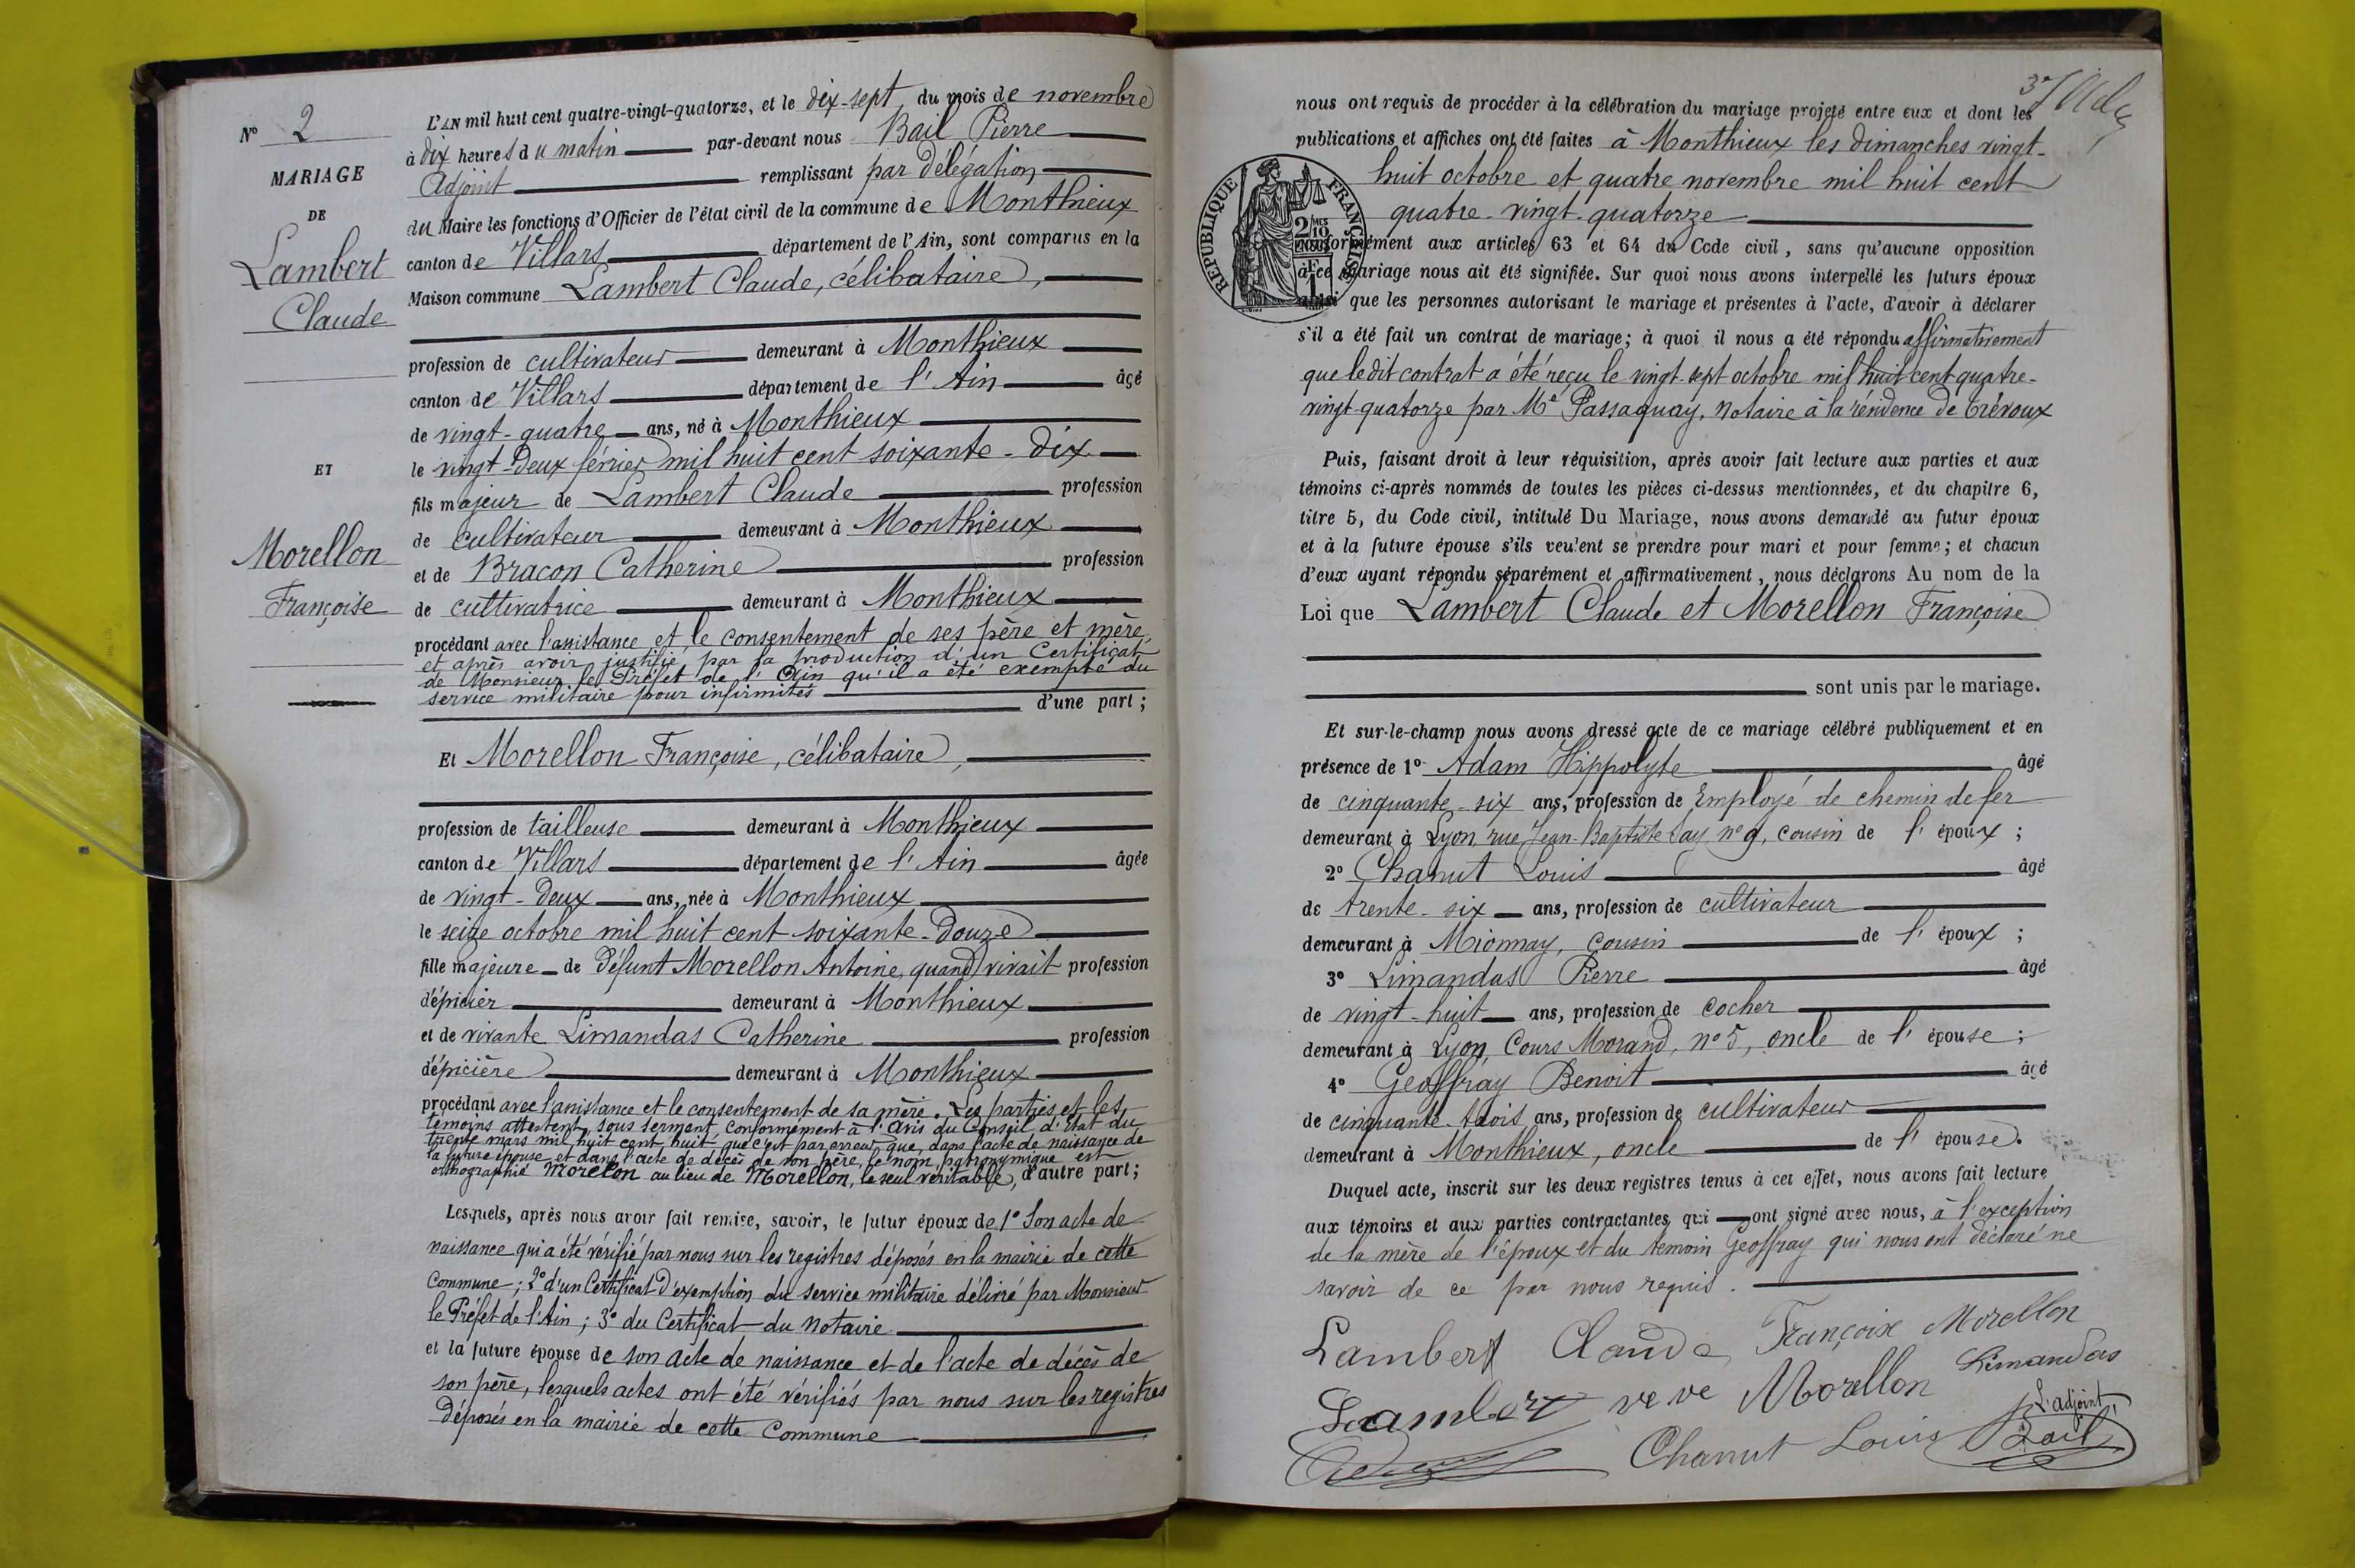 N° 2
MARIAGE
DE
Lambert
Claude
ET
Morellon
Françoise
L'AN mil huit cent quatre-vingt-quatorze, et le dix-sept, du mois de novembre
à dix heures du matin par-devant nous Bail Pierre
Adjoint remplissant par délégation
du Maire les fonctions d'Officier de l'état civil de la commune de Monthieux
canton de Villars département de l'Ain, sont comparus en la
Maison commune Lambert Claude, célibataire,
profession de cultivateur demeurant à Monthieux
canton de Villars département de l'Ain âgé
de vingt-quatre ans, né à Monthieux
le vingt-deux février mil huit cent soixante-dix
fils majeur de Lambert Claude profession
de cultivateur demeurant à Monthieux
et de Bracon Catherine profession
de cultivatrice demeurant à Monthieux
procédant avec l'assistance et le consentement de ses père et mère,
et après avoir justifié par la production d'un Certificat
de Monsieur le Préfet de l'Ain qu'il a été exempté du
service militaire pour infirmités d'une part;
Et Morellon Françoise, célibataire,
profession de tailleuse demeurant à Monthieux
canton de Villars département de l'Ain âgée
de vingt-deux ans, née à Monthieux
le seize octobre mil huit cent soixante-douze
fille majeure de défunt Morellon Antoine, quand vivait profession
d'épicier demeurant à Monthieux
et de vivante Limandas Catherine profession
d'épicière demeurant à Monthieux
procédant avec l'assistance et le consentement de sa mère. Les parties et les
témoins attestent, sous serment, conformément à l'Avis du Conseil d'Etat du
trente mars mil huit cent huit que c'est par erreur que, dans l'acte de naissance de
la future épouse et dans l'acte de décès de son père, le nom patronymique est
orthographié Morelon au lieu de Morellon, le seul véritable, d'autre part;
Lesquels, après nous avoir fait remise, savoir, le futur époux de 1° Son acte de
naissance qui a été vérifié par nous sur les registres déposés en la mairie de cette
Commune; 2° d'un Certificat d'exemption du service militaire délivré par Monsieur
le Préfet de l'Ain; 3° du Certificat du Notaire
et la future épouse de son acte de naissance et de l'acte de décès de
son père, lesquels actes ont été vérifiés par nous sur les registres
déposés en la mairie de cette Commune
nous ont requis de procéder à la célébration du mariage projeté entre eux et dont les
publications et affiches ont été faites à Monthieux les dimanches vingt-
huit octobre et quatre novembre mil huit cent
quatre-vingt-quatorze
REPUBLIQUE FRANÇAISE
conformément aux articles 63 et 64 du Code civil, sans qu'aucune opposition
à ce mariage nous ait été signifiée. Sur quoi nous avons interpellé les futurs époux
ainsi que les personnes autorisant le mariage et présentes à l'acte, d'avoir à déclarer
s'il a été fait un contrat de mariage; à quoi il nous a été répondu affirmativement
que ledit contrat a été reçu le vingt sept octobre mil huit cent quatre-
vingt-quatorze par Me Passaquay, Notaire à la résidence de Trévoux
Puis, faisant droit à leur réquisition, après avoir fait lecture aux parties et aux
témoins ci-après nommés de toutes les pièces ci-dessus mentionnées, et du chapitre 6,
titre 5, du Code civil, intitulé Du Mariage, nous avons demandé au futur époux
et à la future épouse s'ils veulent se prendre pour mari et pour femme; et chacun
d'eux ayant répondu séparément et affirmativement, nous déclarons Au nom de la
Loi que Lambert Claude et Morellon Françoise
sont unis par le mariage.
Et sur-le-champ nous avons dressé acte de ce mariage célébré publiquement et en
présence de 1° Adam Hippolyte âgé
de cinquante-six ans, profession de Employé de chemin de fer
demeurant à Lyon, rue Jean-Baptiste Say n° 9, cousin de l'époux;
2° Chanut Louis âgé
de trente-six ans, profession de cultivateur
demeurant à Mionnay, cousin de l'époux;
3° Limandas Pierre âgé
de vingt-huit ans, profession de cocher
demeurant à Lyon, Cours Morand, n° 5, oncle de l'épouse;
4° Geoffray Benoit âgé
de cinquante-trois ans, profession de cultivateur
demeurant à Monthieux, oncle de l'épouse.
Duquel acte, inscrit sur les deux registres tenus à cet effet, nous avons fait lecture
aux témoins et aux parties contractantes qui ont signé avec nous, à l'exception
de la mère de l'époux et du témoin Geoffray qui nous ont déclaré ne
savoir de ce par nous requis.
Lambert Claude Françoise Morellon
Lambert ve ve Morellon Limandas
L'adjoint
Chanut Louis Bail